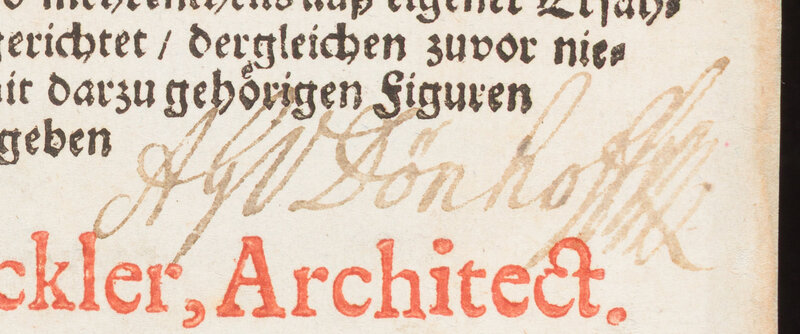 nuß eigener Erfah⸗
gerichtet / dergleichen zuvor nie⸗
mit darzu gehörigen Figuren
geben
AGV Dönhoff
ckler, Architect.